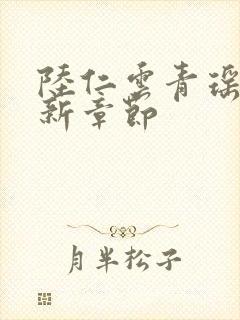 陸仁雲青瑶
新章節
月半松子